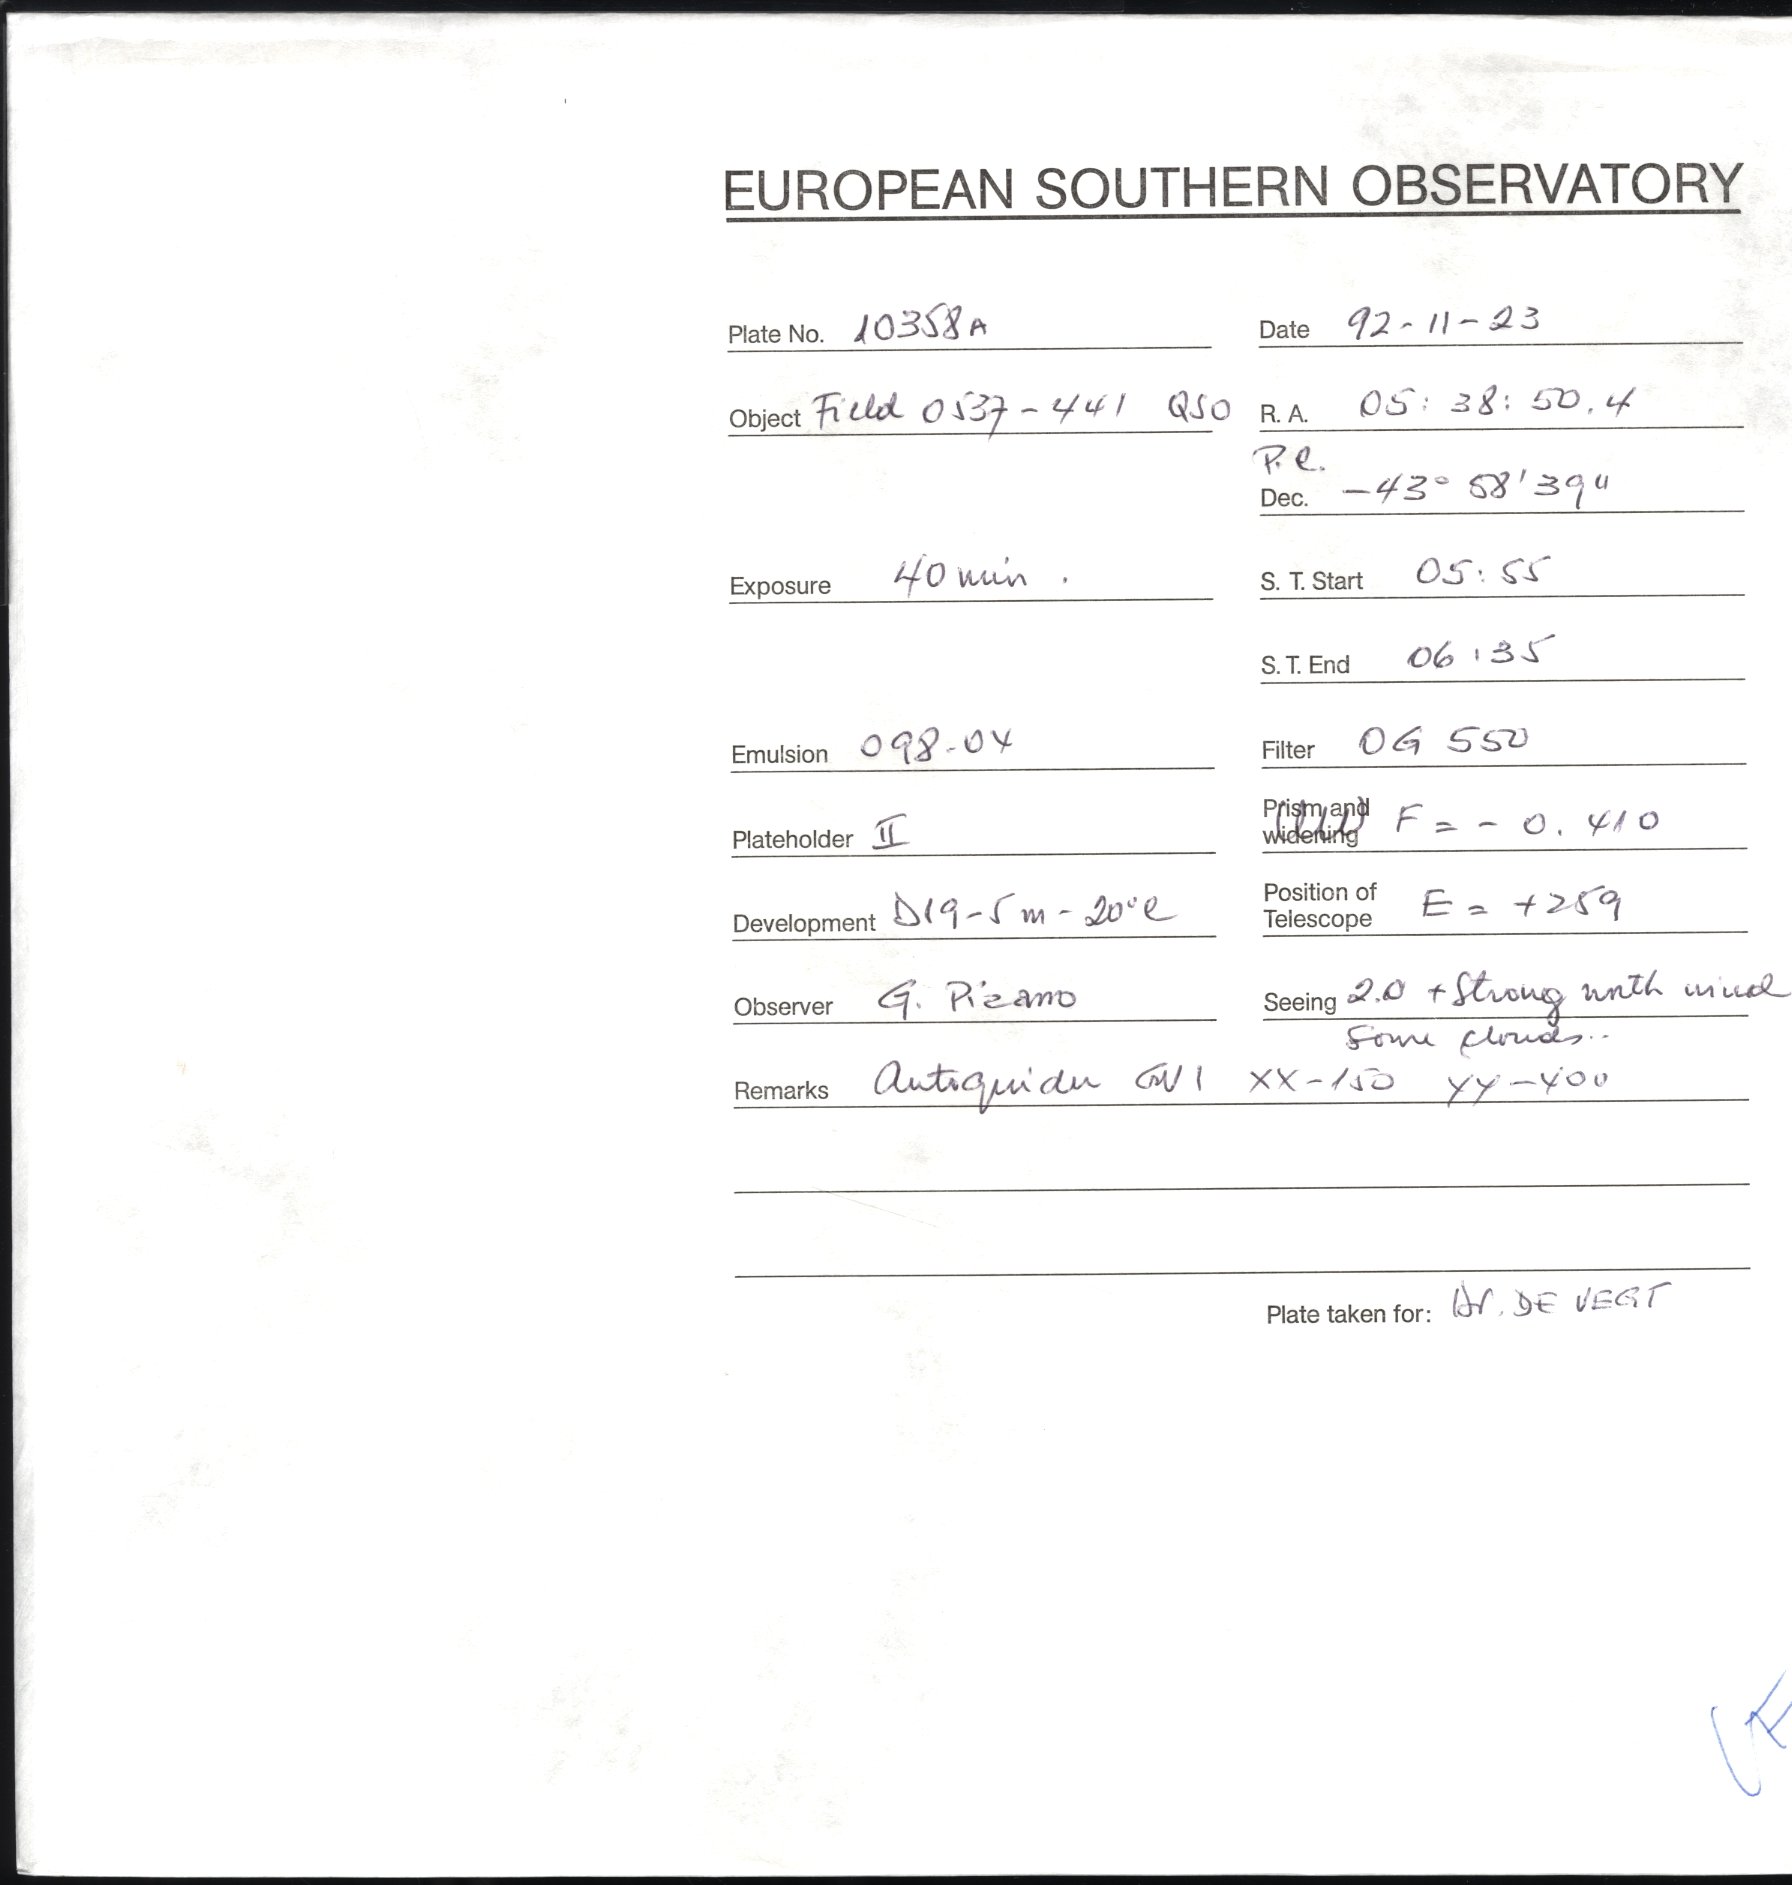 EUROPEAN SOUTHERN OBSERVATORY
Plate No. 10358A Date 92-11-23
Object Field 0537-441 QSO R. A. 05:38:50.4
P.C.
Dec. -43° 58' 39"
Exposure 40 min. S. T. Start 05:55
S. T. End 06:35
Emulsion 098-04 Filter OG 550
Plateholder II Prism and widening F = - 0.410
Development D19-5m-20°C Position of Telescope E = +259
Observer G. Pizarro Seeing 2.0 + Strong north wind
Some clouds..
Remarks Autoguider XX-150 YY-400
Plate taken for: Dr. DE VEGT